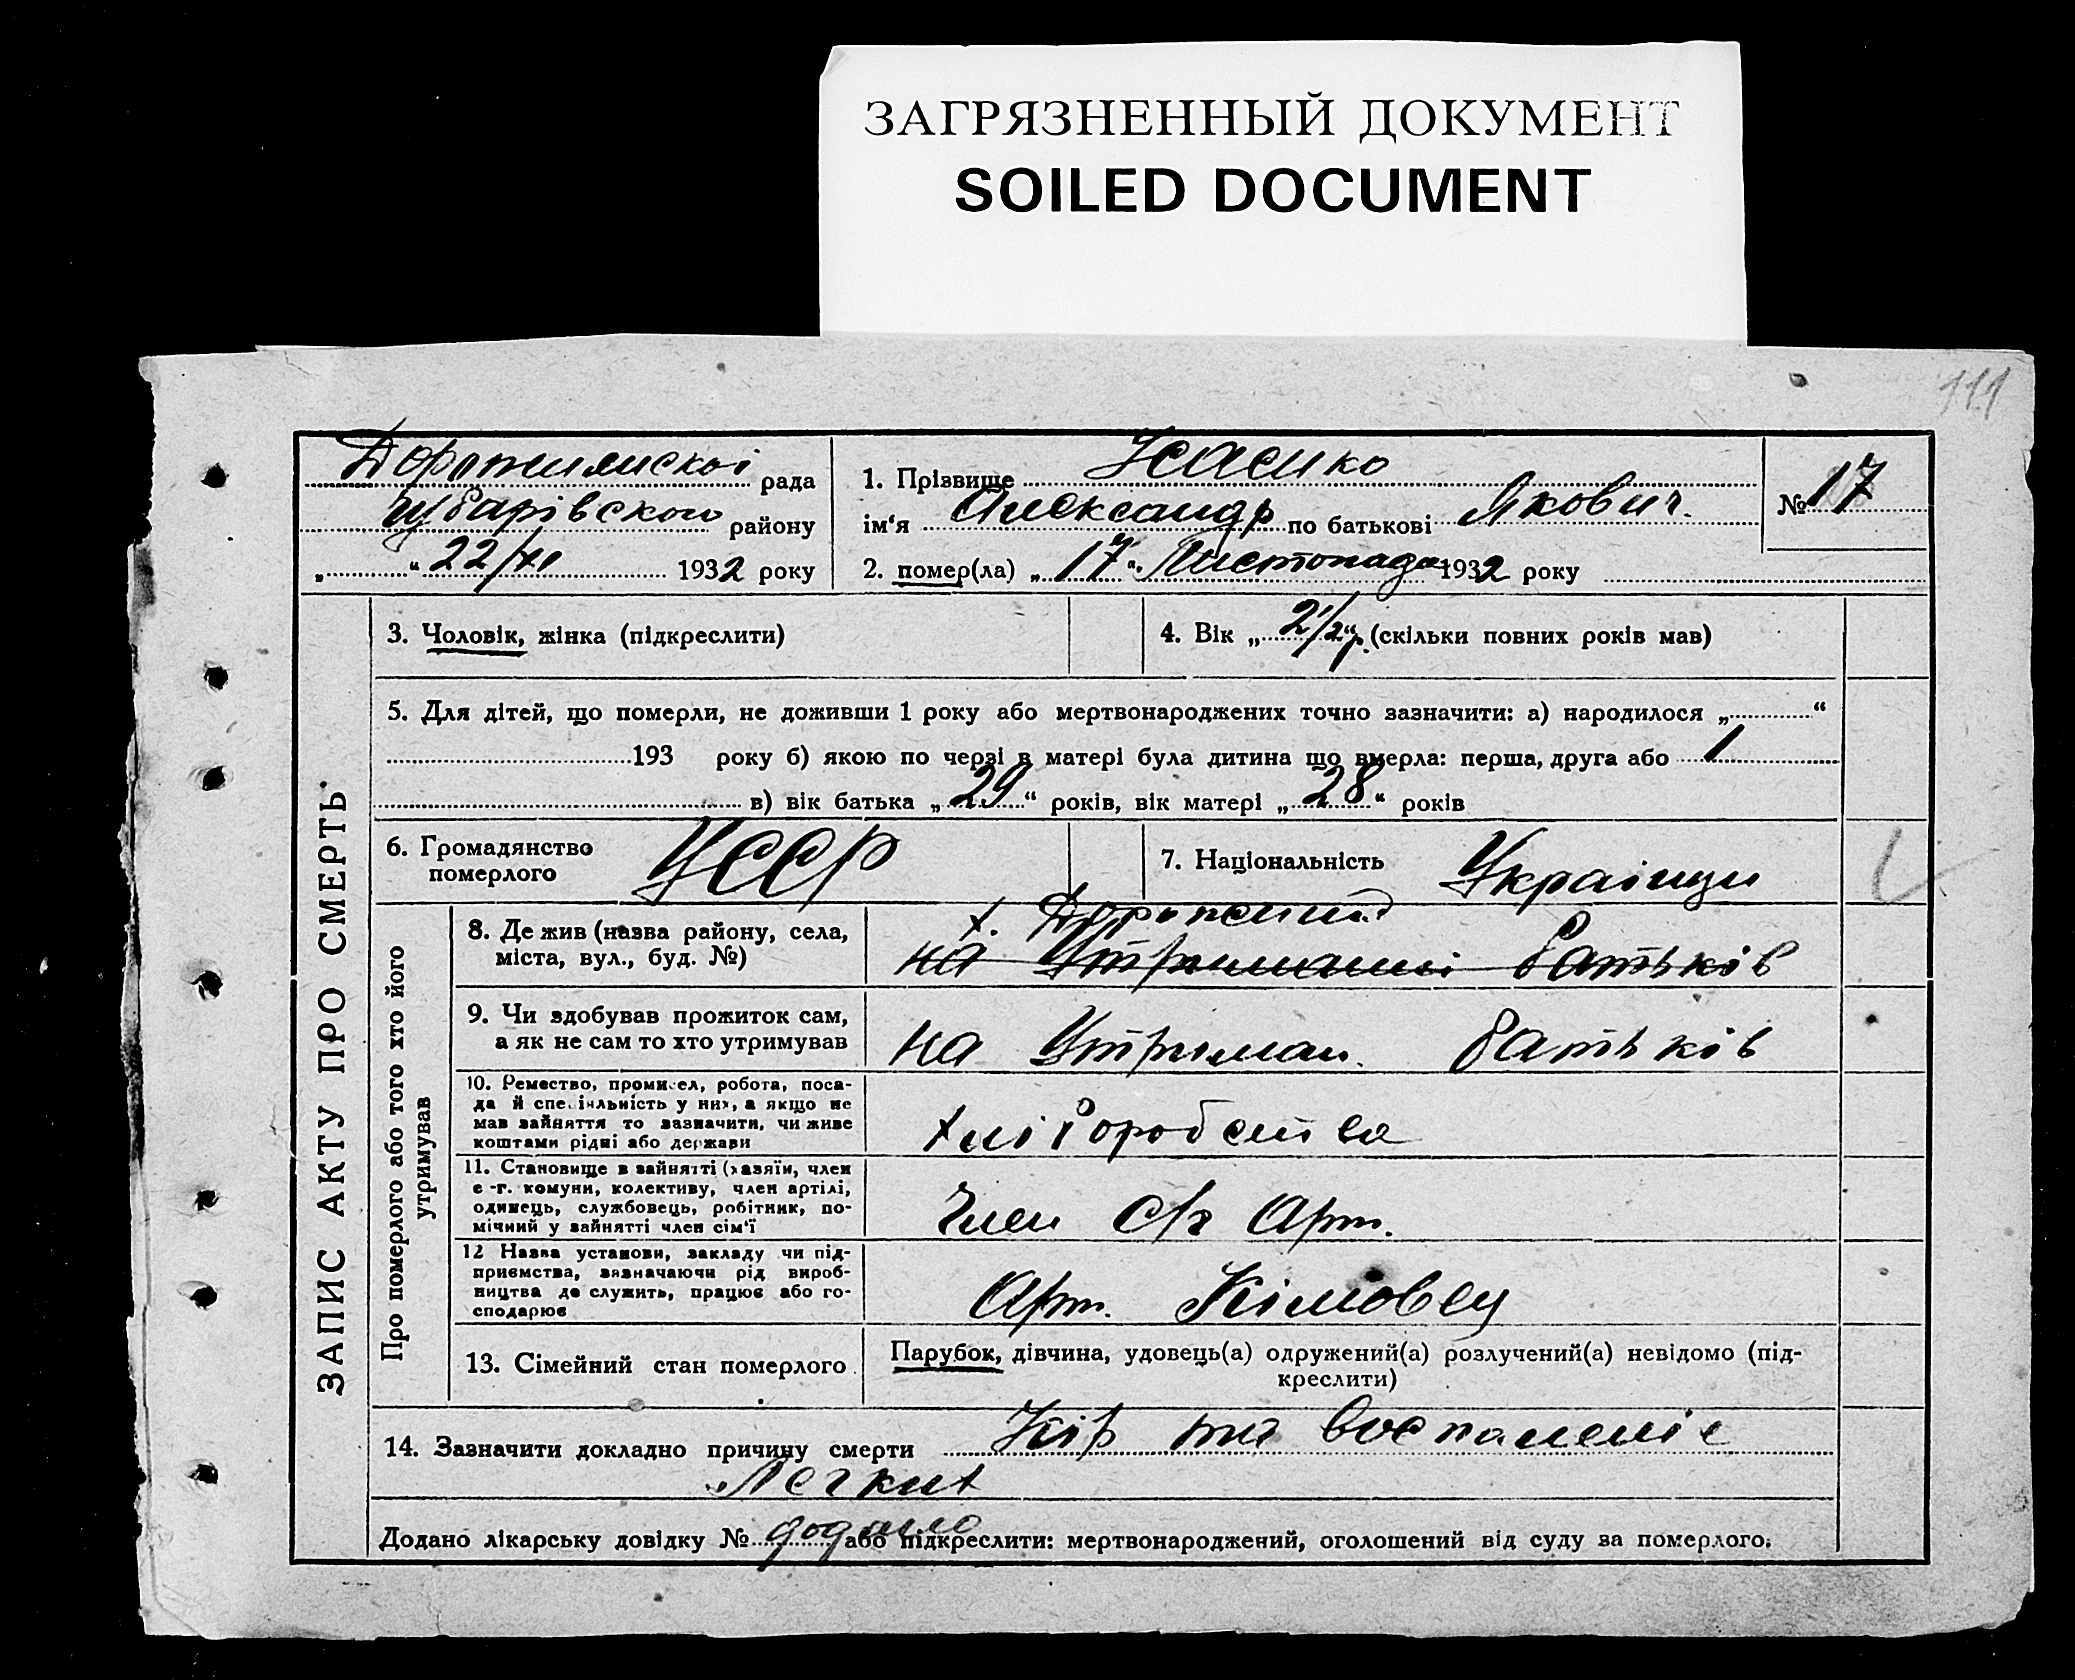 ЗАГРЯЗНЕННЫЙ ДОКУМЕНТ
SOILED DOCUMENT
111
рада
району
„ “ 22/XI 1932 року
1. Прізвище
ім‘я Александр по батькові Якович.
№ 17
2. помер(ла) „ 17 “ Листопада 1932 року
ЗАПИС АКТУ ПРО СМЕРТЬ
3. Чоловік, жінка (підкреслити)
4. Вік „ 2 1/2 р. “ (скільки повних років мав)
5. Для дітей, що померли, не доживши 1 року або мертвонароджених точно зазначити: а) народилося „ “
193 року б) якою по черзі в матері була дитина що вмерла: перша, друга або 1
в) вік батька „ 29 “ років, вік матері „ 28 “ років
6. Громадянство
померлого
УССР
7. Національність Украінци
Про померлого або того хто його
утримував
8. Де жив (назва району, села,
міста, вул., буд. №)
х.
на Утриманні батьків
9. Чи здобував прожиток сам,
а як не сам то хто утримував
на Утриман. батьків
10. Ремество, промисел, робота, поса-
да й спеціяльність у них, а якщо не
мав зайняття то зазначити, чи живе
коштами рідні або держави
хліборобства
11. Становище в зайнятті (хазяїн, член
с.-г. комуни, колективу, член артілі,
одинець, службовець, робітник, по-
мічний у зайнятті член сім‘ї
Член с/г Арт.
12 Назва установи, закладу чи під-
приємства, зазначаючи рід вироб-
ництва де служить, працює або го-
сподарює
Арт. Кімовец
13. Сімейний стан померлого
Парубок, дівчина, удовець(а) одружений(а) розлучений(а) невідомо (під-
креслити)
14. Зазначити докладно причину смерти Кір та воспаленіє
Легких
Додано лікарську довідку № додано або підкреслити: мертвонароджений, оголошений від суду за померлого.